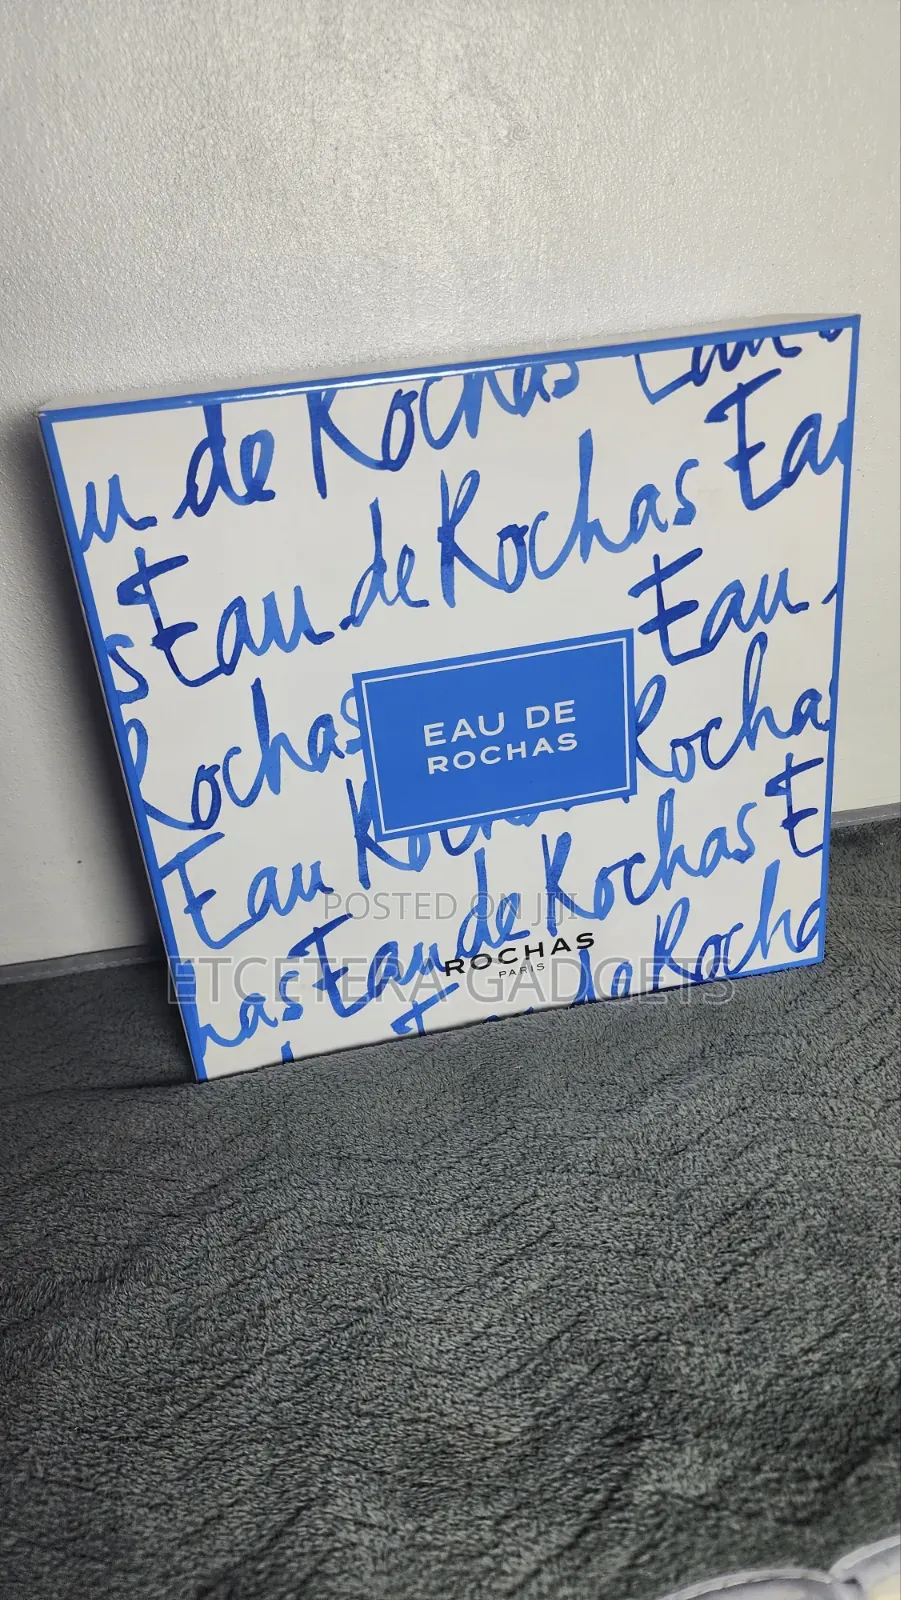 u de Rochas Eau
Eau de Rochas Eau
s Eau
Rochas
EAU DE
ROCHAS
Rocha
Eau Roch
de Rochas E
POSTED ON JIJI
has Eau de Rocha
ROCHAS
PARIS
ETCETERA GADGETS